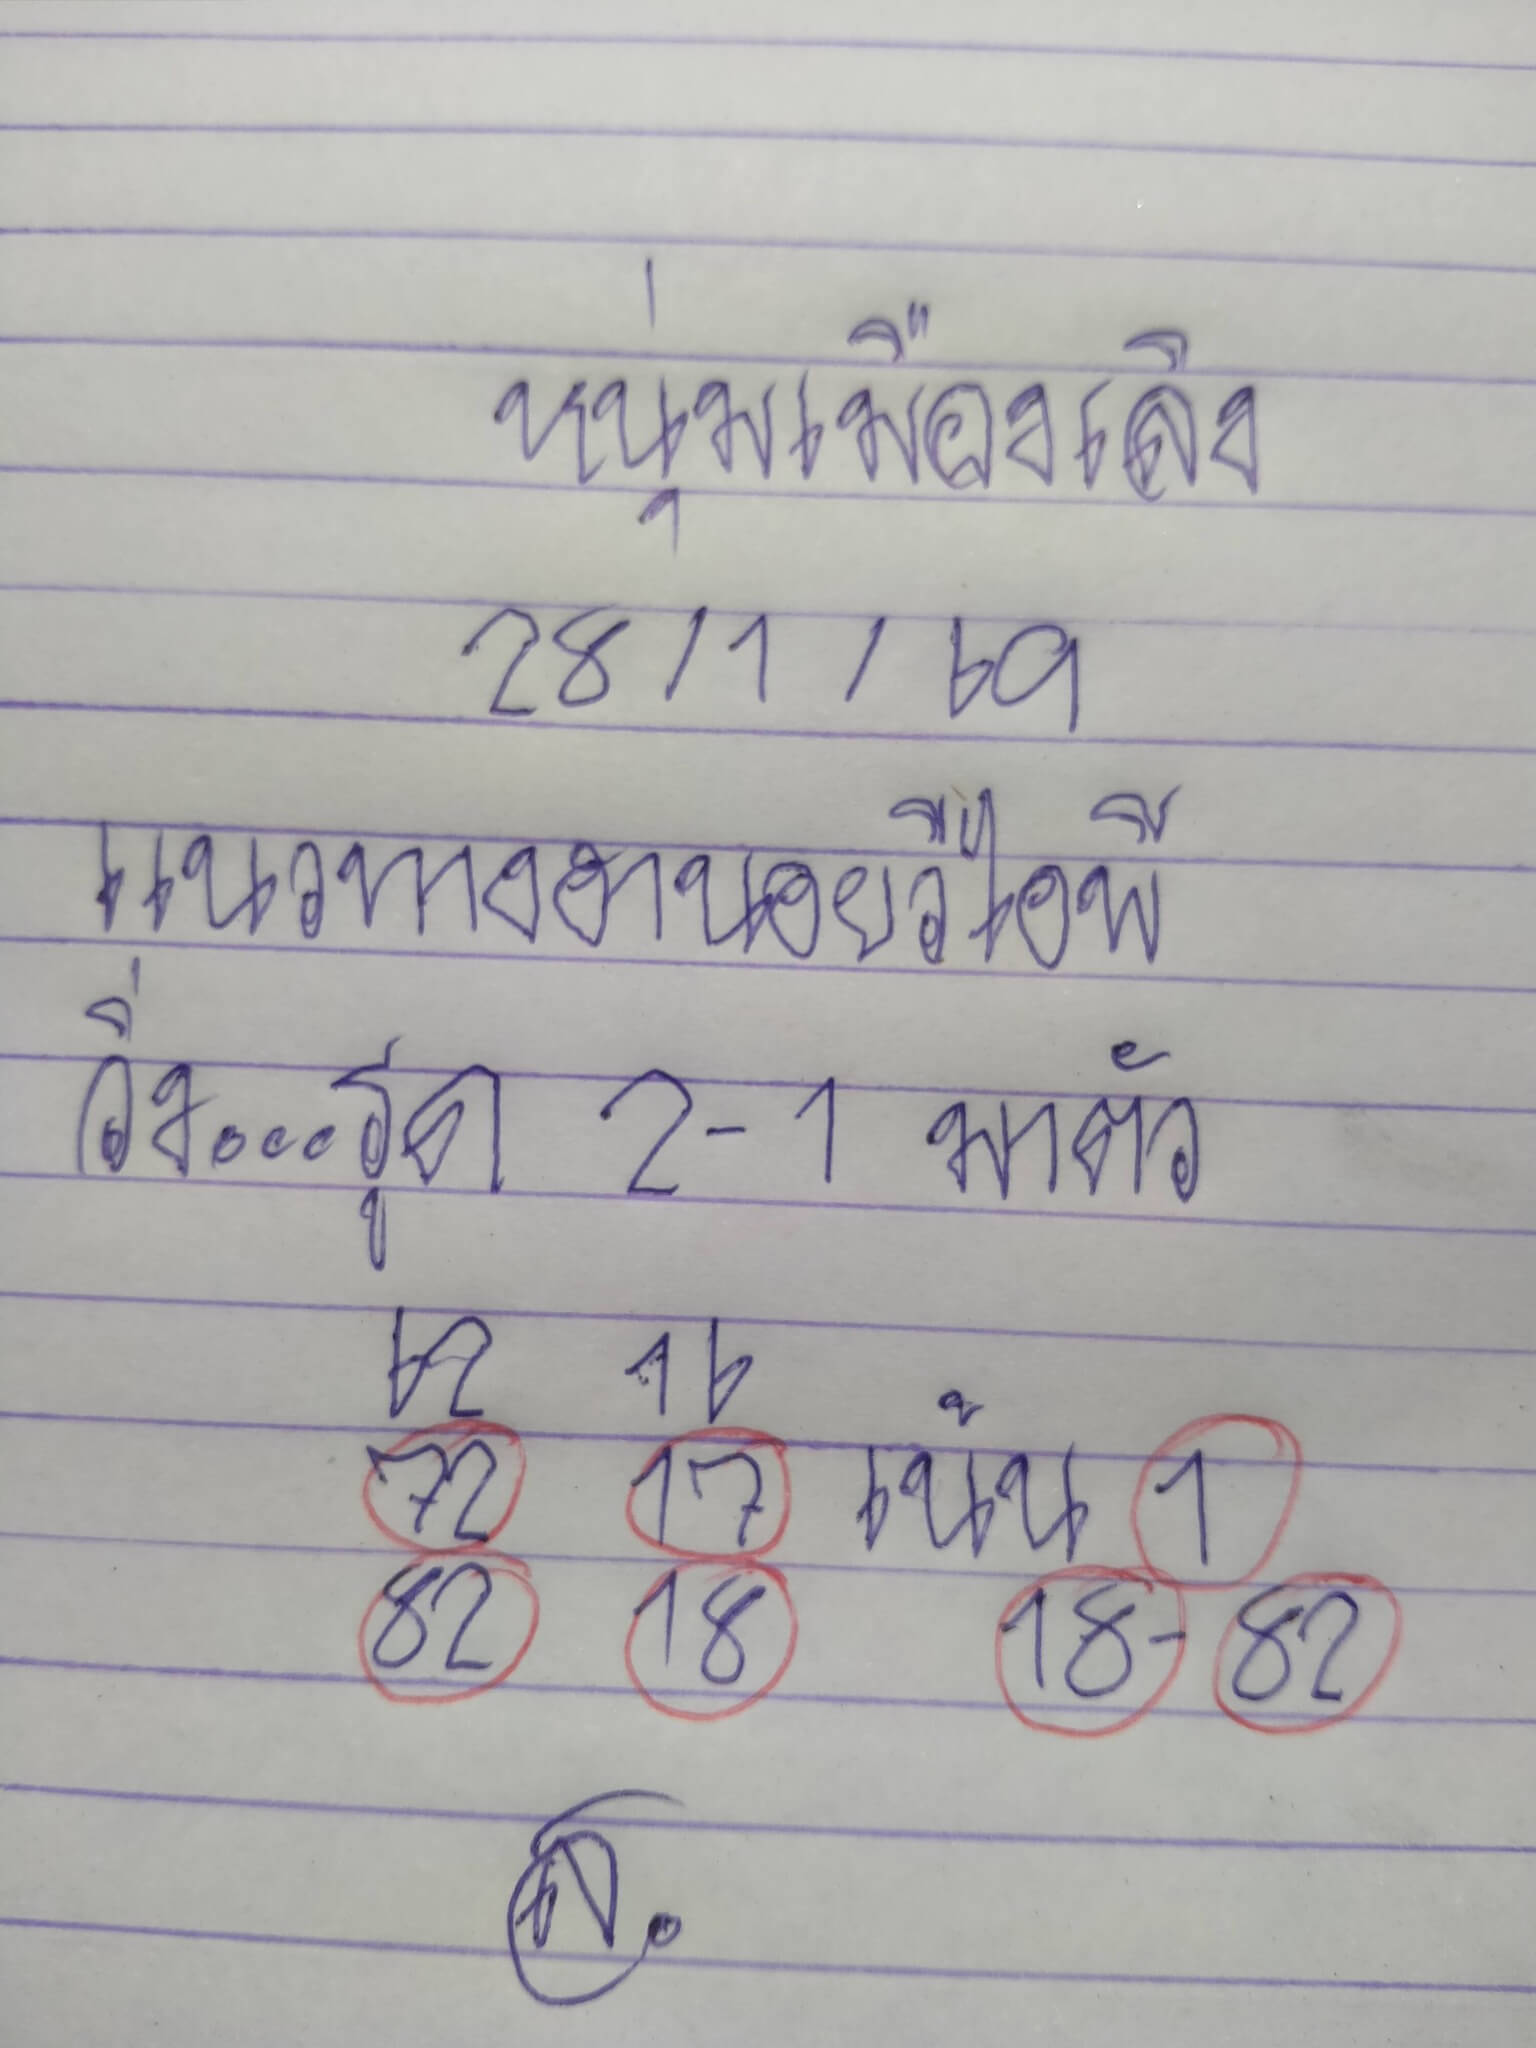 หนุ่มเมืองเลิง
28/1/69
แนวทางฮานอยวีไอพี
วิ่ง....รูด 2-1 มาตัว
62 16
72 17 เน้น 1
82 18 18-82